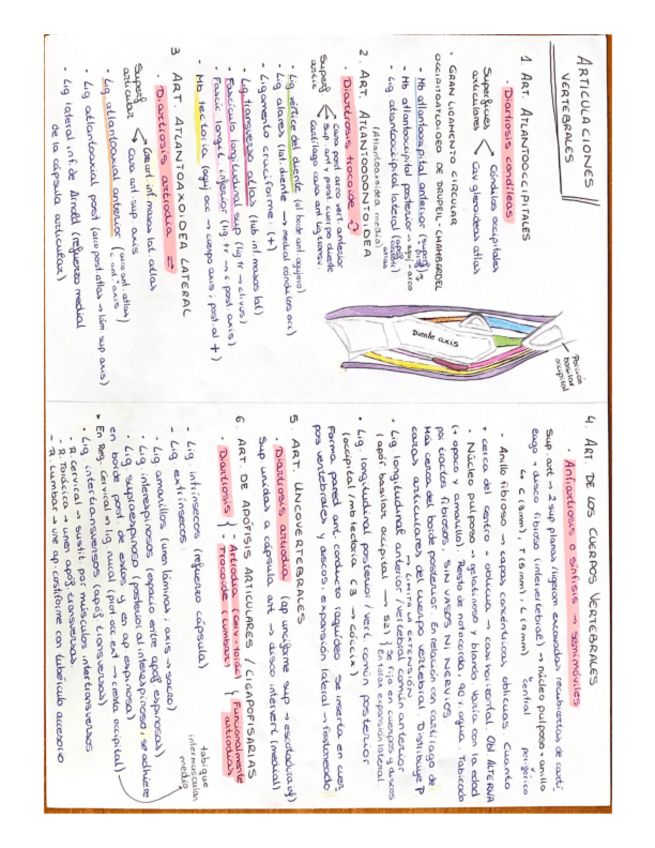 ARTICULACIONES
VERTEBRALES
1. ART. ATLANTOOCCIPITALES
· Diartrosis condíleas
Superficies articulares < Cóndilos occipitales
Cav. glenoideas atlas
· GRAN LIGAMENTO CIRCULAR
OCCIPITOATLOIDEO DE
· Mb atlantooccipital anterior
· Mb atlantooccipital posterior → arco
atlas
· Lig atlantooccipital lateral
(Atlantoaxoidea media)
2. ART. ATLANTOODONTOIDEA
· Diartrosis trocoide
Superf artic < Cara post arco vert anterior
sup ant y post cuerpo diente
Cartílago cara ant lig transv
· Lig vértice del diente (al borde ant agujero)
· Lig alares (lat. diente → medial cóndilos occ)
· Ligamento cruciforme: (+)
· Lig transverso atlas (tub inf masas lat)
· Fascículo longitudinal sup (lig tr → clivus)
· Fascic. longit inferior (lig tr → c post. axis)
· Mb tectoria (aguj occ → cuerpo axis; post al +)
3 ART. ATLANTOAXOIDEA LATERAL
· Diartrosis artrodia ⇌
Superf articular < Car. art inf masas lat atlas
Cara art sup axis
· Lig atlantoaxial anterior (arco ant. atlas
c ant axis)
· Lig atlantoaxial post (arco post atlas → lám sup axis)
· Lig lateral inf. de Arnold (refuerzo medial
de la cápsula articular)
Diente axis
Porción
basilar
occipital
4. ART DE LOS CUERPOS VERTEBRALES
· Anfiartrosis o sínfisis → semimóviles
Sup. art → 2 sup planas (ligeram excavadas recubiertas de cartí-
lago + disco fibroso (intervertebral) → núcleo pulposo + anillo
↳ C (3mm), T (5mm), L (9mm) central periférico
· Anillo fibroso → capas concéntricas oblicuas Cuanto
+ cerca del centro + oblicua → casi horizontal. Obl ALTERNA
· Núcleo pulposo → gelatinoso y blando varía con la edad
(+ opaco y amarillo). Resto de notocorda, 90% agua. Tabicado
por tractos fibrosos. SIN VASOS NI NERVIOS
Más cerca del borde posterior En relación con cartílago de
caras articulares del cuerpo vertebral. Distribuye P.
→ LIMITA LA EXTENSIÓN
· Lig longitudinal anterior / vertebral común anterior
(apóf basilar occipital → S2) } Se fija en cuerpos y discos
En tórax expansión lateral
· Lig. longitudinal posterior / vert común posterior
(occipital / mb tectoria C3 → cóccix)
Forma pared ant. conducto raquídeo Se inserta en cuer
pos vertebrales y discos: expansión lateral → festoneado
5 ART. UNCOVERTEBRALES
· Diartrosis artrodia (ap unciforme sup → escotadura inf)
Sup unidas a cápsula art → disco intervert (medial)
6 ART. DE APÓFISIS ARTICULARES / CIGAPOFISARIAS
· Diartrosis { - Artrodia (Cerv - torác)
- Trocoide (lumbares) } Funcionalmente
artrodias
- Lig. intrínsecos (refuerzo cápsula)
- Lig extrínsecos
· Lig amarillos (unen láminas; axis → sacro)
· Lig interespinosos (espacio entre apóf espinosas)
· Lig supraespinoso (posterior al interespinoso, se adhiere
en borde post de estos y en ap espinosa)
* En Reg. Cervical → lig nucal (prot occ ext → cresta occipital)
tabique
intermuscular
medio
· Lig intertransversos (apóf transversas)
- R. Cervical → sustit. por músculos intertransversos
- R. Torácica → unen apóf transversas
- R. Lumbar → une ap. costiforme con tubérculo accesorio